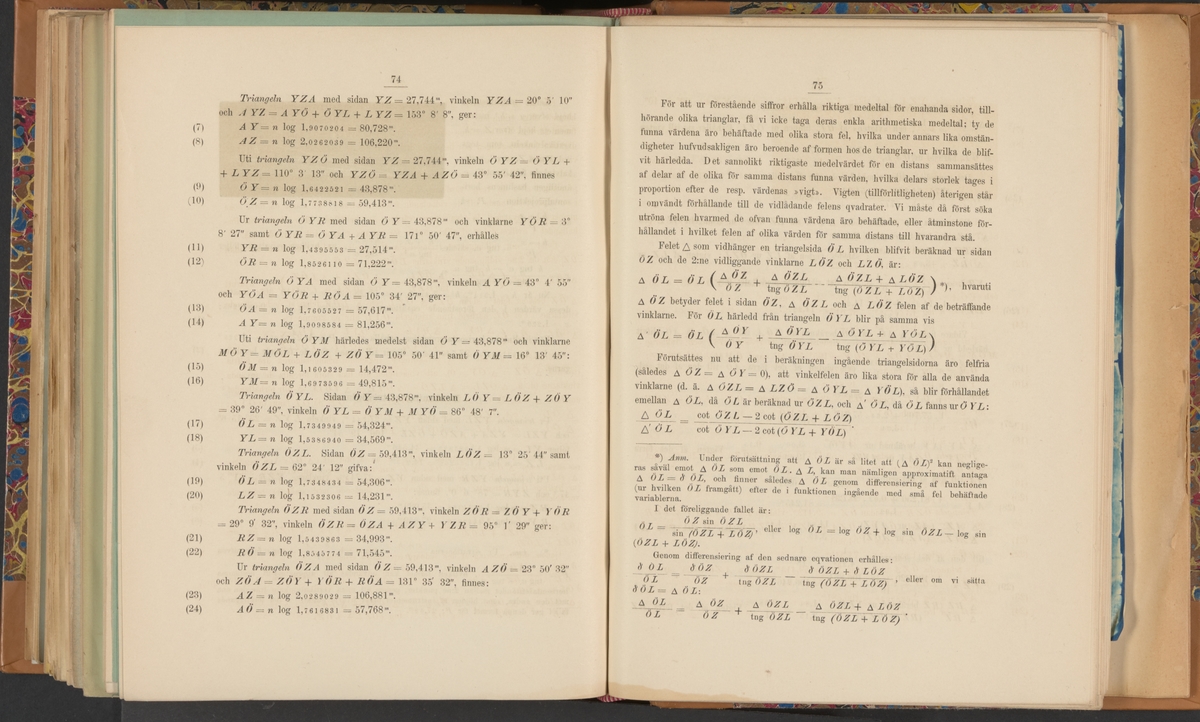 74
Triangeln YZA med sidan YZ = 27,744m, vinkeln YZA = 20° 5' 10"
och AYZ = AYÖ + ÖYL + LYZ = 153° 8' 8", ger:
(7) AY = n log 1,9070204 = 80,728m.
(8) AZ = n log 2,0262039 = 106,220m.
Uti triangeln YZÖ med sidan YZ = 27,744m, vinkeln ÖYZ = ÖYL +
+ LYZ = 110° 3' 13" och YZÖ = YZA + AZÖ = 43° 55' 42", finnes
(9) ÖY = n log 1,6422521 = 43,878m.
(10) ÖZ = n log 1,7738818 = 59,413m.
Ur triangeln ÖYR med sidan ÖY = 43,878m och vinklarne YÖR = 3°
8' 27" samt ÖYR = ÖYA + AYR = 171° 50' 47", erhålles
(11) YR = n log 1,4395553 = 27,514m.
(12) ÖR = n log 1,8526110 = 71,222m.
Triangeln ÖYA med sidan ÖY = 43,878m, vinkeln AYÖ = 43° 4' 55"
och YÖA = YÖR + RÖA = 105° 34' 27", ger:
(13) ÖA = n log 1,7605527 = 57,617m.
(14) AY = n log 1,9098584 = 81,256m.
Uti triangeln ÖYM härledes medelst sidan ÖY = 43,878m och vinklarne
MÖY = MÖL + LÖZ + ZÖY = 105° 50' 41" samt ÖYM = 16° 13' 45":
(15) ÖM = n log 1,1605329 = 14,472m.
(16) YM = n log 1,6973596 = 49,815m.
Triangeln ÖYL. Sidan ÖY = 43,878m, vinkeln LÖY = LÖZ + ZÖY
= 39° 26' 49", vinkeln ÖYL = ÖYM + MYÖ = 86° 48' 7".
(17) ÖL = n log 1,7349949 = 54,324m.
(18) YL = n log 1,5386940 = 34,569m.
Triangeln ÖZL. Sidan ÖZ = 59,413m, vinkeln LÖZ = 13° 25' 44" samt
vinkeln ÖZL = 62° 24' 12" gifva:
(19) ÖL = n log 1,7348434 = 54,306m.
(20) LZ = n log 1,1532306 = 14,231m.
Triangeln ÖZR med sidan ÖZ = 59,413m, vinkeln ZÖR = ZÖY + YÖR
= 29° 9' 32", vinkeln ÖZR = ÖZA + AZY + YZR = 95° 1' 29" ger:
(21) RZ = n log 1,5439863 = 34,993m.
(22) RÖ = n log 1,8545774 = 71,545m.
Ur triangeln ÖZA med sidan ÖZ = 59,413m, vinkeln AZÖ = 23° 50' 32"
och ZÖA = ZÖY + YÖR + RÖA = 131° 35' 32", finnes:
(23) AZ = n log 2,0289029 = 106,881m.
(24) AÖ = n log 1,7616831 = 57,768m.
75
För att ur förestående siffror erhålla riktiga medeltal för enahanda sidor, till-
hörande olika trianglar, få vi icke taga deras enkla arithmetiska medeltal; ty de
funna värdena äro behäftade med olika stora fel, hvilka under annars lika omstän-
digheter hufvudsakligen äro beroende af formen hos de trianglar, ur hvilka de blif-
vit härledda. Det sannolikt riktigaste medelvärdet för en distans sammansättes
af delar af de olika för samma distans funna värden, hvilka delars storlek tages i
proportion efter de resp. värdenas »vigt». Vigten (tillförlitligheten) återigen står
i omvändt förhållande till de vidlådande felens qvadrater. Vi måste då först söka
utröna felen hvarmed de ofvan funna värdena äro behäftade, eller åtminstone för-
hållandet i hvilket felen af olika värden för samma distans till hvarandra stå.
Felet △ som vidhänger en triangelsida ÖL hvilken blifvit beräknad ur sidan
ÖZ och de 2:ne vidliggande vinklarne LÖZ och LZÖ, är:
Δ ÖL = ÖL (Δ ÖZ / ÖZ + Δ ÖZL / tng ÖZL − Δ ÖZL + Δ LÖZ / tng (ÖZL + LÖZ)) *), hvaruti
Δ ÖZ betyder felet i sidan ÖZ, Δ ÖZL och Δ LÖZ felen af de beträffande
vinklarne. För ÖL härledd från triangeln ÖYL blir på samma vis
Δ' ÖL = ÖL (Δ ÖY / ÖY + Δ ÖYL / tng ÖYL − Δ ÖYL + Δ YÖL / tng (ÖYL + YÖL))
Förutsättes nu att de i beräkningen ingående triangelsidorna äro felfria
(således Δ ÖZ = Δ ÖY = 0), att vinkelfelen äro lika stora för alla de använda
vinklarne (d. ä. Δ ÖZL = Δ LZÖ = Δ ÖYL = Δ YÖL), så blir förhållandet
emellan Δ ÖL, då ÖL är beräknad ur ÖZL, och Δ' ÖL, då ÖL fanns ur ÖYL:
Δ ÖL / Δ' ÖL = cot ÖZL — 2 cot (ÖZL + LÖZ) / cot ÖYL — 2 cot (ÖYL + YÖL).
*) Anm. Under förutsättning att Δ ÖL är så litet att (Δ ÖL)² kan neglige-
ras såväl emot Δ ÖL som emot ÖL. Δ L, kan man nämligen approximatift antaga
Δ ÖL = ∂ ÖL, och finner således Δ ÖL genom differensiering af funktionen
(ur hvilken ÖL framgått) efter de i funktionen ingående med små fel behäftade
variablerna.
I det föreliggande fallet är:
ÖL = ÖZ sin ÖZL / sin (ÖZL + LÖZ), eller log ÖL = log ÖZ + log sin ÖZL — log sin
(ÖZL + LÖZ).
Genom differensiering af den sednare eqvationen erhålles:
∂ ÖL / ÖL = ∂ ÖZ / ÖZ + ∂ ÖZL / tng ÖZL − ∂ ÖZL + ∂ LÖZ / tng (ÖZL + LÖZ), eller om vi sätta
∂ ÖL = Δ ÖL:
Δ ÖL / ÖL = Δ ÖZ / ÖZ + Δ ÖZL / tng ÖZL − Δ ÖZL + Δ LÖZ / tng (ÖZL + LÖZ).